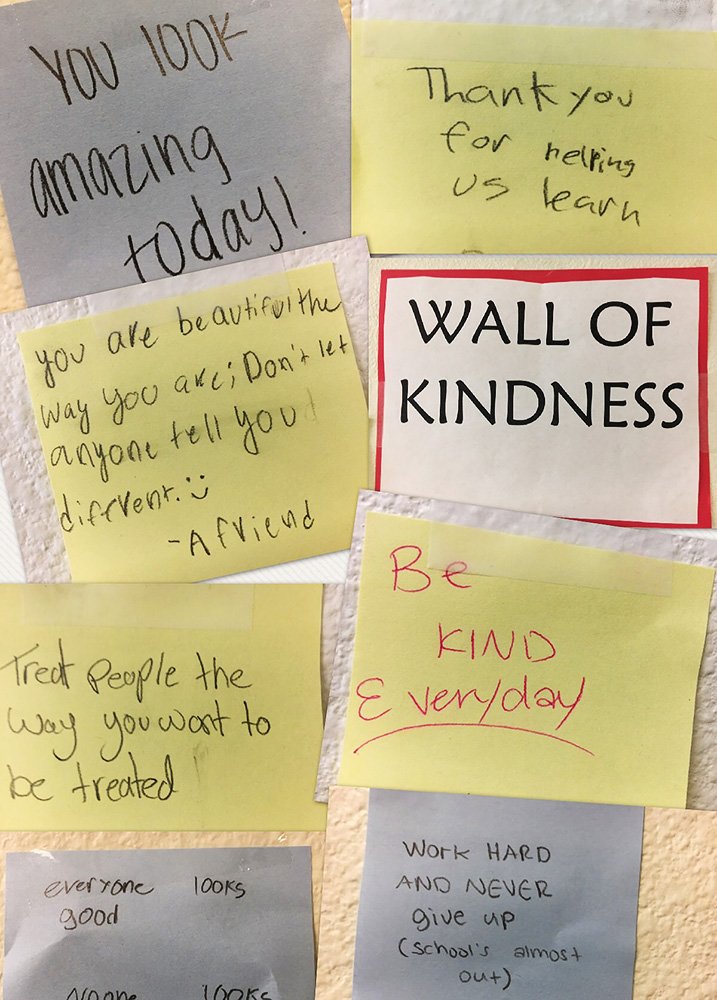 YOU lOOK
amazing
today!
Thank you
for helping
us learn
you are beautiful the
way you are; Don't let
anyone tell you
different. :)
- A friend
WALL OF
KINDNESS
Be
KIND
Everyday
Treat people the
way you want to
be treated
everyone looks
good
Work HARD
AND NEVER
give up
(school's almost
out)
noone looks